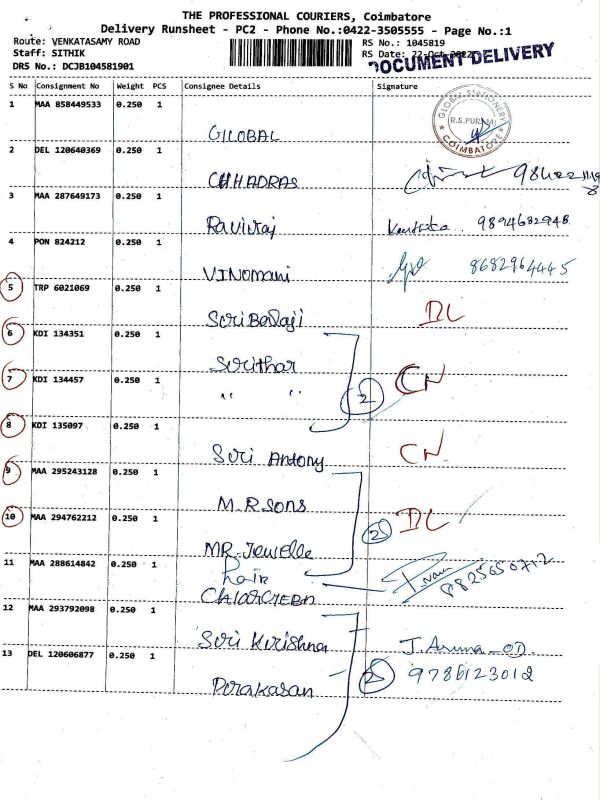 THE PROFESSIONAL COURIERS, Coimbatore
Delivery Runsheet - PC2 - Phone No.:0422-3505555 - Page No.:1
Route: VENKATASAMY ROAD RS No.: 1045819
Staff: SITHIK RS Date: 22-Oct-2022
DOCUMENT DELIVERY
DRS No.: DCJB104581901
S No Consignment No Weight PCS Consignee Details Signature
1 MAA 858449533 0.250 1
GLOBAL STATIONERY
R.S.PURAM
COIMBATORE
GILOBAL
2 DEL 120640369 0.250 1
CHHADRAS
3 MAA 287649173 0.250 1
Raviraj 9894682948
4 PON 824212 0.250 1
VINOMANI 8682964445
5 TRP 6021069 0.250 1
Sri Balaji DL
6 KDI 134351 0.250 1
Srithar
7 KDI 134457 0.250 1
" " 2 CN
8 KDI 135097 0.250 1
Sri Antony CN
9 MAA 295243128 0.250 1
M.R SONS
10 MAA 294762212 0.250 1
2 DL
MR. Jewelle
11 MAA 288614842 0.250 1
hair
12 MAA 293792098 0.250 1
Sri Krishna J. Aruna
13 DEL 120606877 0.250 1
2 9786123012
Prakasan